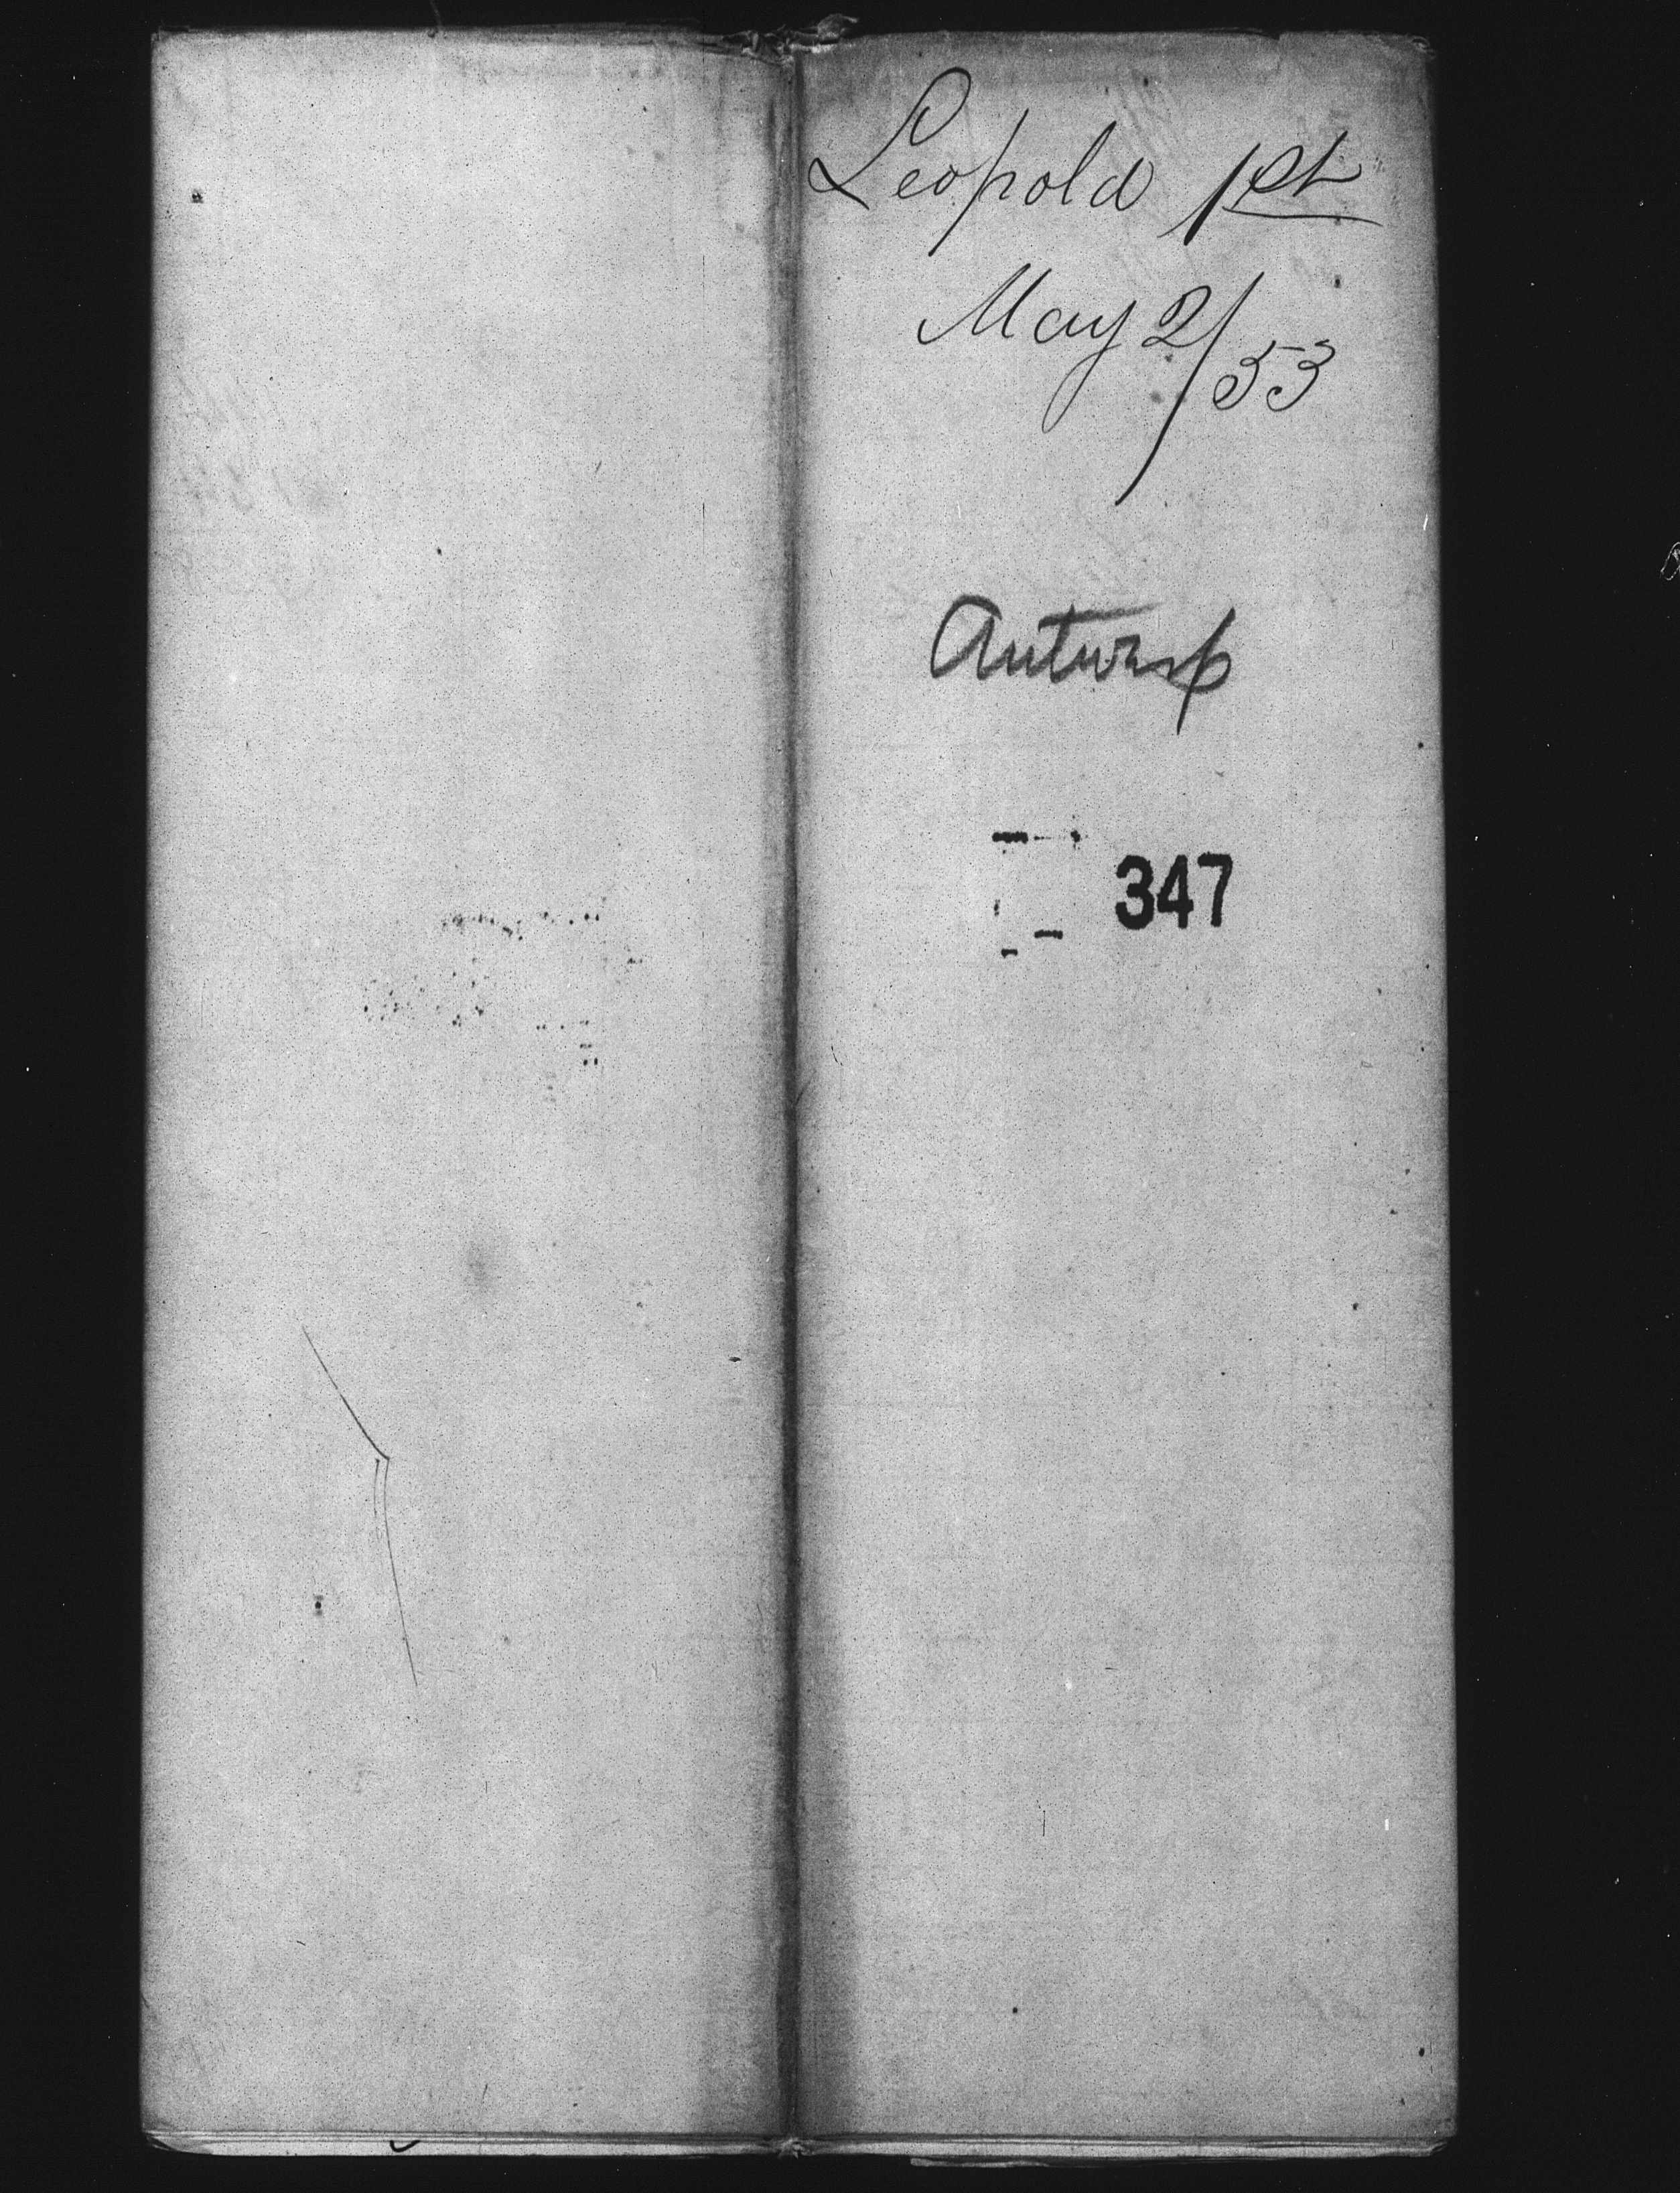 Leopold 1st
May 2/53
Antwerp
347